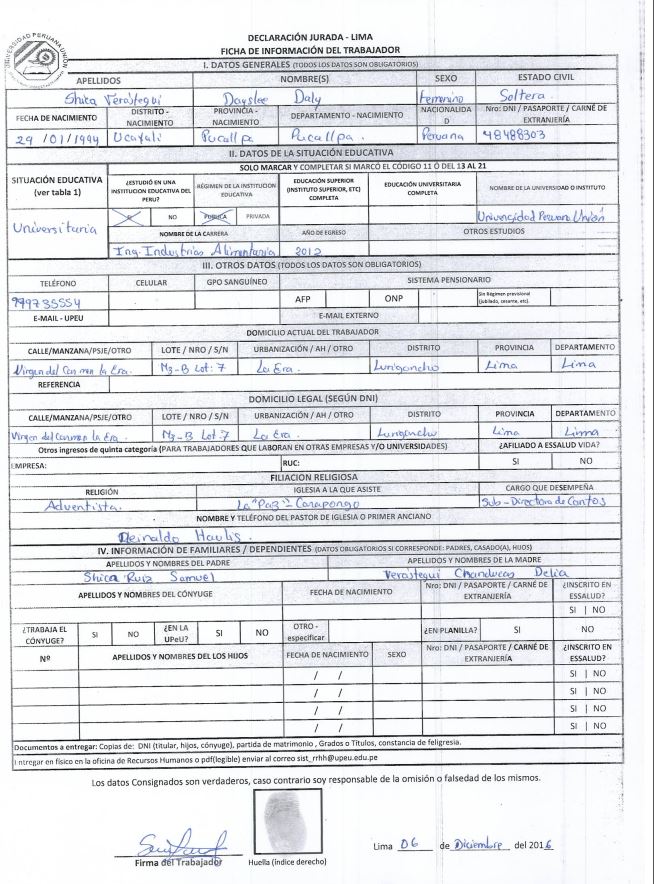 UNIVERSIDAD PERUANA UNIÓN
DECLARACIÓN JURADA - LIMA
FICHA DE INFORMACIÓN DEL TRABAJADOR
I. DATOS GENERALES (TODOS LOS DATOS SON OBLIGATORIOS)
APELLIDOS NOMBRE(S) SEXO ESTADO CIVIL
Shica Verástegui Dayslee Daly Femenino Soltera
FECHA DE NACIMIENTO DISTRITO - NACIMIENTO PROVINCIA - NACIMIENTO DEPARTAMENTO - NACIMIENTO NACIONALIDAD Nro: DNI / PASAPORTE / CARNÉ DE EXTRANJERÍA
29 /01/1994 Ucayali Pucallpa Pucallpa. Peruana 48488303
II. DATOS DE LA SITUACIÓN EDUCATIVA
SOLO MARCAR Y COMPLETAR SI MARCÓ EL CÓDIGO 11 Ó DEL 13 AL 21
SITUACIÓN EDUCATIVA (ver tabla 1) ¿ESTUDIÓ EN UNA INSTITUCION EDUCATIVA DEL PERU? RÉGIMEN DE LA INSTITUCION EDUCATIVA EDUCACIÓN SUPERIOR (INSTITUTO SUPERIOR, ETC) COMPLETA EDUCACIÓN UNIVERSITARIA COMPLETA NOMBRE DE LA UNIVERSIDAD O INSTITUTO
Universitaria SI NO PÚBLICA PRIVADA Universidad Peruana Unión
NOMBRE DE LA CARRERA AÑO DE EGRESO OTROS ESTUDIOS
Ing. Industrias Alimentaria 2012
III. OTROS DATOS (TODOS LOS DATOS SON OBLIGATORIOS)
TELÉFONO CELULAR GPO SANGUÍNEO SISTEMA PENSIONARIO
999735554 AFP ONP Sin Régimen previsional (jubilado, cesante, etc).
E-MAIL - UPEU E-MAIL EXTERNO
DOMICILIO ACTUAL DEL TRABAJADOR
CALLE/MANZANA/PSJE/OTRO LOTE / NRO / S/N URBANIZACIÓN / AH / OTRO DISTRITO PROVINCIA DEPARTAMENTO
Virgen del Carmen la Era. Mz-B Lot: 7 La Era. Lurigancho Lima Lima
REFERENCIA
DOMICILIO LEGAL (SEGÚN DNI)
CALLE/MANZANA/PSJE/OTRO LOTE / NRO / S/N URBANIZACIÓN / AH / OTRO DISTRITO PROVINCIA DEPARTAMENTO
Virgen del Carmen la Era. Mz-B Lot: 7 La Era. Lurigancho Lima Lima
Otros ingresos de quinta categoría (PARA TRABAJADORES QUE LABORAN EN OTRAS EMPRESAS Y/O UNIVERSIDADES) ¿AFILIADO A ESSALUD VIDA?
EMPRESA: RUC: SI NO
FILIACION RELIGIOSA
RELIGIÓN IGLESIA A LA QUE ASISTE CARGO QUE DESEMPEÑA
Adventista. La "Paz" - Carapongo Sub-Directora de Cantos
NOMBRE Y TELÉFONO DEL PASTOR DE IGLESIA O PRIMER ANCIANO
Reinaldo
IV. INFORMACIÓN DE FAMILIARES / DEPENDIENTES (DATOS OBLIGATORIOS SI CORRESPONDE: PADRES, CASADO(A), HIJOS)
APELLIDOS Y NOMBRES DEL PADRE APELLIDOS Y NOMBRES DE LA MADRE
Shica Ruiz Samuel Verástegui Chanducas Delia
APELLIDOS Y NOMBRES DEL CÓNYUGE FECHA DE NACIMIENTO Nro: DNI / PASAPORTE / CARNÉ DE EXTRANJERÍA ¿INSCRITO EN ESSALUD?
SI | NO
¿TRABAJA EL CÓNYUGE? SI NO ¿EN LA UPeU? SI NO OTRO - especificar ¿EN PLANILLA? SI NO
Nº APELLIDOS Y NOMBRES DEL LOS HIJOS FECHA DE NACIMIENTO SEXO Nro: DNI / PASAPORTE / CARNÉ DE EXTRANJERÍA ¿INSCRITO EN ESSALUD?
/ / SI | NO
/ / SI | NO
/ / SI | NO
/ / SI | NO
Documentos a entregar: Copias de: DNI (titular, hijos, cónyuge), partida de matrimonio , Grados o Títulos, constancia de feligresia.
Entregar en físico en la oficina de Recursos Humanos o pdf(legible) enviar al correo sist_rrhh@upeu.edu.pe
Los datos Consignados son verdaderos, caso contrario soy responsable de la omisión o falsedad de los mismos.
Lima 06 de Diciembre del 2016
Firma del Trabajador Huella (índice derecho)